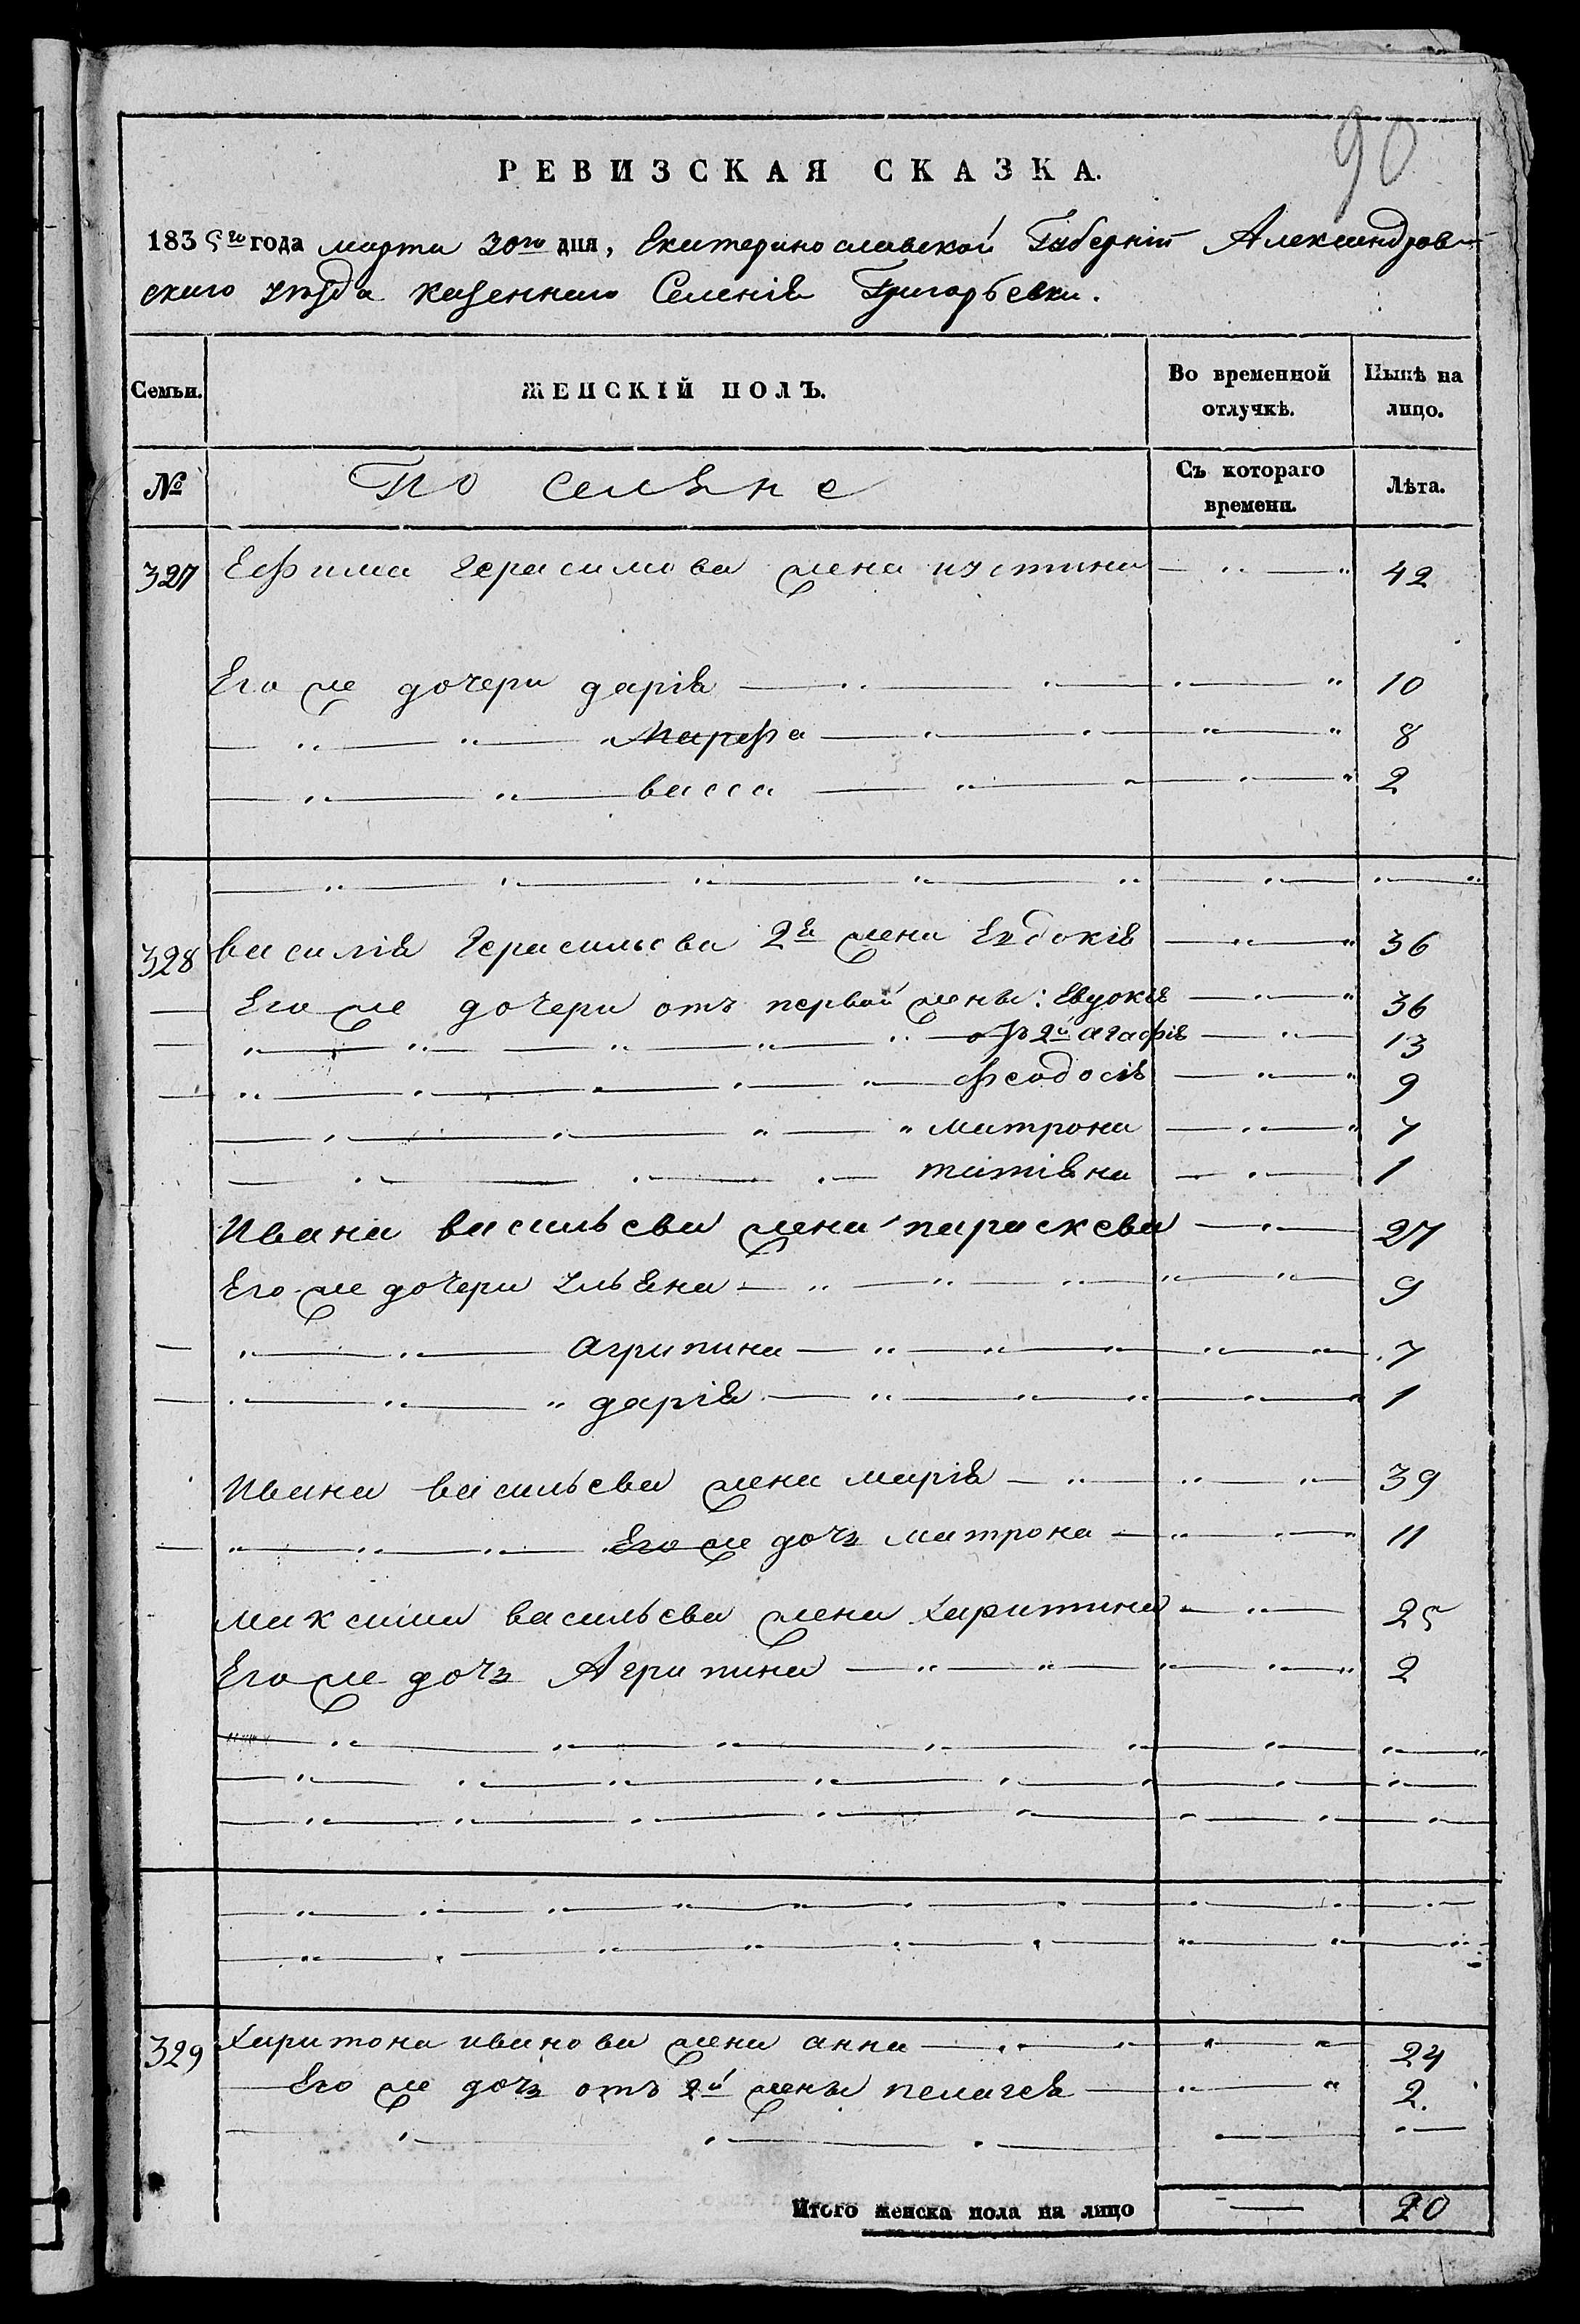 90
РЕВИЗСКАЯ СКАЗКА.
1835го года марта 30го дня, Екатеринославской Губерніи Александров-
скаго уезда казеннаго Селенія Григорьевки.
Семьи. ЖЕНСКІЙ ПОЛЪ. Во временной отлучкѣ. Нынѣ на лицо.
№ Поселяне Съ котораго времени. Лѣта.
327 Ефима Герасимова жена иустина 42
Его же дочери дарія 10
Марфа 8
васса 2
328 василія Герасимова 2я жена Евдокія 36
Его же дочери отъ первой жены: Евдокія 36
отъ 2й агафія 13
феодосія 9
матрона 7
татіяна 1
Ивана васильева жена параскева 27
Его же дочери ульяна 9
агрипина 7
дарія 1
Ивана васильева жена марія 39
Его же дочъ матрона 11
максима васильева жена харитина 25
Его же дочъ Агрипина 2
329 харитона иванова жена анна 24
Его же дочъ отъ 2й жены пелагея 2.
Итого женска пола на лицо 20